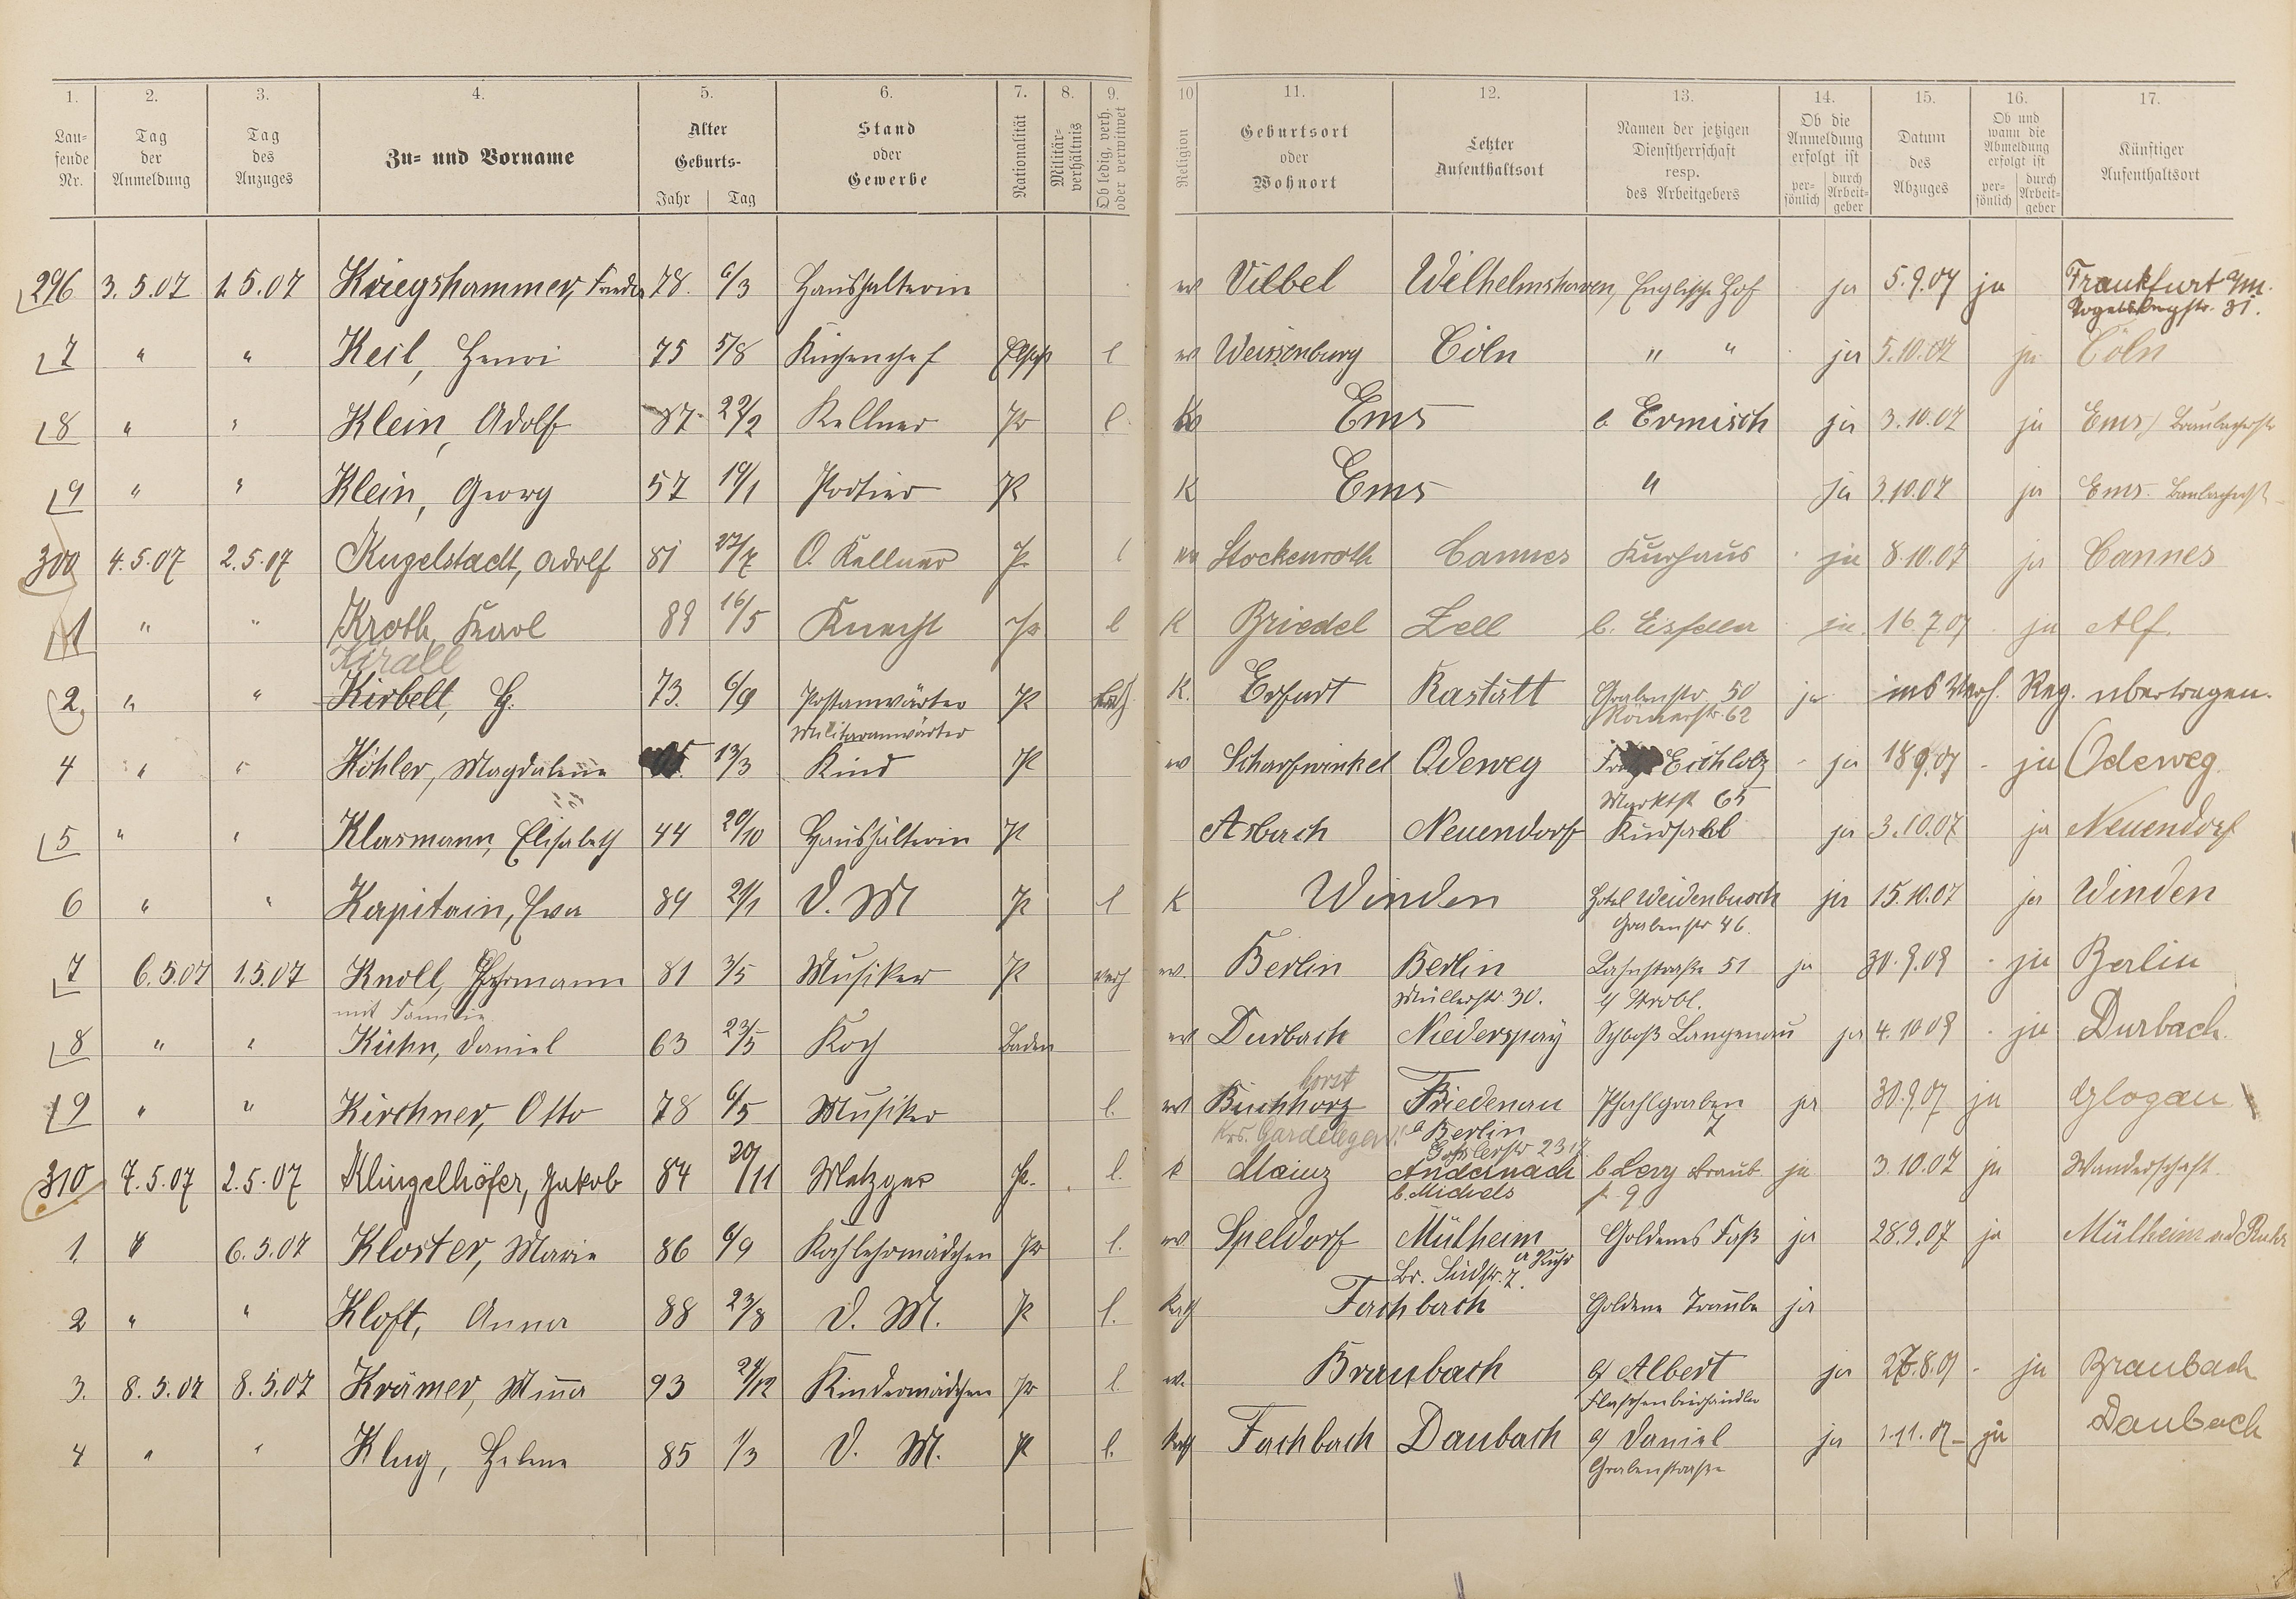 1. 2. 3. 4. 5. 6. 7. 8. 9. 10 11. 12. 13. 14. 15. 16. 17.
Lau-fende Nr. Tag der Anmeldung Tag des Anzuges Zu- und Vorname Alter Geburts- Jahr Tag Stand oder Gewerbe Nationalität Militär-verhältnis Ob ledig, verh. oder verwitwet Religion Geburtsort oder Wohnort Letzter Aufenthaltsort Namen der jetzigen Dienstherrschaft resp. des Arbeitgebers Ob die Anmeldung erfolgt ist per-sönlich durch Arbeit-geber Datum des Abzuges Ob und wann die Abmeldung erfolgt ist per-sönlich durch Arbeit-geber Künftiger Aufenthaltsort
296 3.5.07 1.5.07 Kriegshammer, 78. 6/3 Haushälterin ev Vilbel Wilhelmshaven, Englische Hof ja 5.9.07 ja Frankfurt a/m.
Vogelsbergstr. 31.
7 " " Keil, Henri 75 5/8 Küchenchef l ev Weissenburg Cöln " " ja 5.10.07 ja Cöln
8 " " Klein, Adolf 87 22/2 Kellner Pr l. Ems b. Ermisch ja 3.10.07 ja Ems
9 " " Klein, Georg 57 19/1 Portier Pr K Ems " ja 3.10.07 ja Ems.
300 4.5.07 2.5.07 Kugelstadt, Adolf 81 27/7 O. Kellner Pr. l ev Stockenroth Cannes Kurhaus ja 8.10.07 ja Cannes
1 " " Kroth, Karl 89 16/5 Knecht Pr l K Briedel Zell b. Eisfeller ja 16.7.07 ja Alf.
Kirall
2. " " Kirbelt, G. 73. 6/9 Postanwärter Pr K. Erfurt Rastatt Grabenstr. 50 ja ins Verh. Reg. übertragen.
Militäranwärter Römerstr. 62
4 " " Köhler, Magdalene 13/3 Kind Pr ev Scharfwinkel Odeweg Eichholz ja 18.9.07 ja Odeweg
Marktstr 65
5 " " Klasmann, Elisabeth 44 20/10 Haushälterin Pr Asbach Neuendorf ja 3.10.07 ja Neuendorf
6 " " Kapitain, Eva 89 21/1 D. M Pr l K Winden Hotel Weidenbusch ja 15.10.07 ja Winden
Grabenstr 46.
7 6.5.07 1.5.07 Knoll, Hermann 81 3/5 Musiker Pr verh ev. Berlin Berlin Lahnstraße 51 ja 30.9.09 ja Berlin
mit Familie Müllerstr. 30. b/ Strobl.
8 " " Kühn, Daniel 63 23/5 Koch Baden ev Durbach Niederspay Schloß Langenau ja 4.10.09 ja Durbach.
horst
9 " " Kirchner, Otto 78 6/5 Musiker l. ev Buchhorz Friedenau Pfahlgraben ja 30.9.07 ja Glogau
Krs. Gardelegen b Berlin 7
310 7.5.07 2.5.07 Klingelhöfer, Jakob 84 20/11 Metzger Pr. l. K Mainz Andernach b. Levy ja 3.10.07 ja Wanderschaft
b. Michels
1. " 6.5.07 Kloster, Marie 86 6/9 Kochlehrmädchen Pr l. ev Speldorf Mülheim Goldenes Faß ja 28.9.07 ja Mülheim a/d Ruhr
a Ruhr
Br. Südstr. 7.
2 " " Kloft, Anna 88 23/8 D. M. Pr l. Kath Fachbach Goldene Traube ja
3. 8.5.07 8.5.07 Krämer, Minna 93 24/12 Kindermädchen Pr l. ev. Braubach b/ Albert ja 27.8.07 ja Braubach
Flaschenbierhändler
4 " " Klug, Helene 85 1/3 D. M. Pr l. Kath Fachbach Daubach b/ Daniel ja 1.11.07 ja Daubach
Grabenstraße